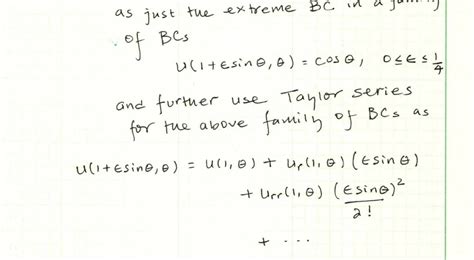 as just the extreme BC in a family
of BCs
u(1+ϵsinθ,θ) = cosθ, 0≤ϵ≤1/4
and further use Taylor series
for the above family of BCs as
u(1+ϵsinθ,θ) = u(1,θ) + ur(1,θ) (ϵsinθ)
+ urr(1,θ) (ϵsinθ)²/2!
+ ...